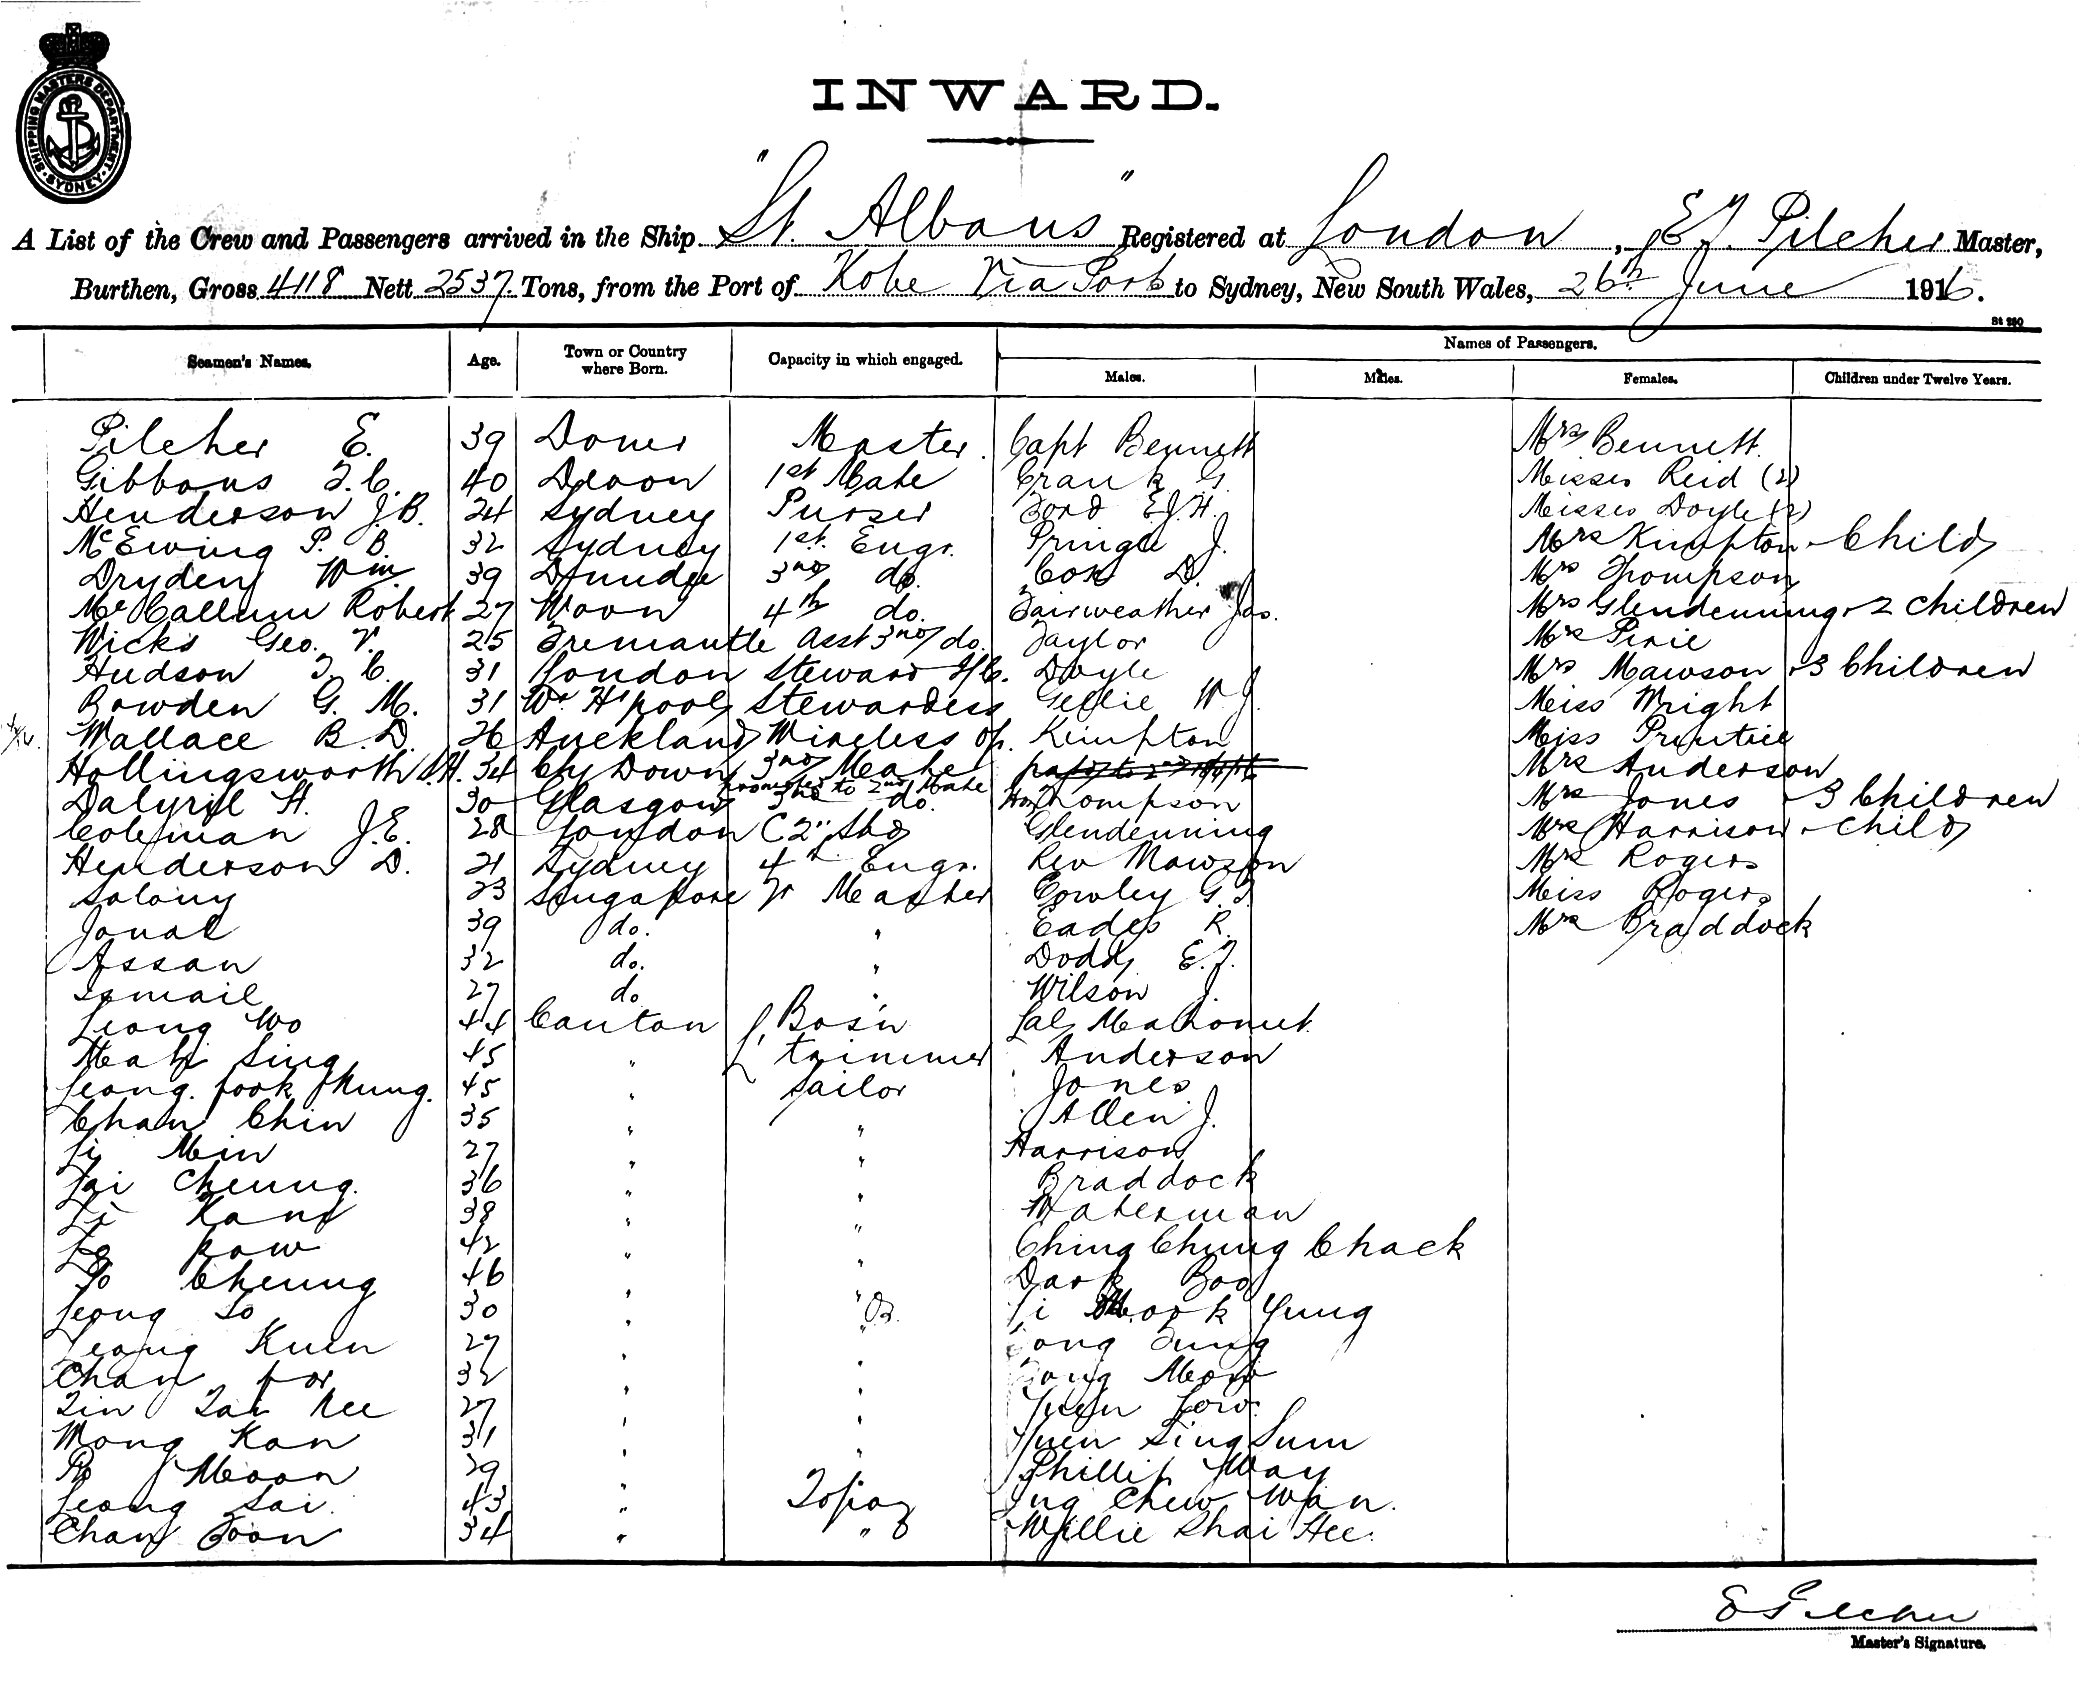 SHIPPING MASTERS DEPARTMENT · SYDNEY ·
INWARD.
A List of the Crew and Passengers arrived in the Ship "St. Albans" Registered at London, E.J. Pilcher Master,
Burthen, Gross 4118 Nett 2537. Tons, from the Port of Kobe Via Ports to Sydney, New South Wales, 26th June 1916.
St 290
Seamen's Names. Age. Town or Country where Born. Capacity in which engaged. Names of Passengers.
Males. Males. Females. Children under Twelve Years.
Pilcher E. 39 Dover Master. Capt Bennett Mrs Bennett.
Gibbons 40 Devon 1st Mate G. Misses Reid (2)
Henderson J.B. 24 Sydney Purser Ford E.J.H. Misses Doyle (2)
McEwing P. B. 32 Sydney 1st. Engr. Pringle J. Mrs Kimpton - Child
Dryden Wm 39 Dundee 3rd do. Cox D. Mrs Thompson
McCallum Robert 27 4th do. Fairweather Jas. Mrs Glendenning & 2 Children
Wicks Geo. V. 25 Fremantle Asst 3rd do. Taylor Mrs Pirie
Hudson 31 London Steward Doyle Mrs Mawson & 3 Children
Bowden G. M. 31 W. H'pool Stewardess Gellie W J. Miss Wright
Wallace B. D. 26 Auckland Wireless op. Kimpton Miss Prentice
Hollingsworth 34 Cy Down 3rd Mate Mrs Anderson
promoted to 2nd Mate
Dalyril H. 30 Glasgow 3rd do. Thompson Mrs Jones & 3 Children
Coleman J.E. 28 London C 2" Glendenning Mrs Harrison - Child
Henderson D. 21 Sydney 4th Engr. Rev Mawson Mrs Rogers
Solony 23 Singapore Cowley G. Miss Rogers
Jonal 39 do. " Eades R. Mrs Braddock
Assan 32 do. " Dodd E.J.
Ismail 27 do " Wilson J.
Leong Wo 44 Canton Bos'n Lal Mahomet.
Mah Sing 45 " trimmer Anderson
Leong. fook Kung. 45 " sailor Jones
Chan Chin 35 " " Allen J.
Li Min 27 " " Harrison
Lai Cheung. 36 " " Braddock
Li Kang 38 " " Waterman
Lo pow 42 " " Ching Chung Chack
Cheung 46 " " Dark Boo
Leong So 30 " " Yung
Leong Kuen 27 " " Fung
Chan for 32 " "
Lin Tai Kee 27 " " Yuen Low.
Wong Kan 31 " " Yuen Sing Sum
Moon 29 " Phillip Way
Leong Sai. 43 " Topaz Chew Wan.
Chan Foon 34 " " Willie Shai Hee.
E Pilcher
Master's Signature.